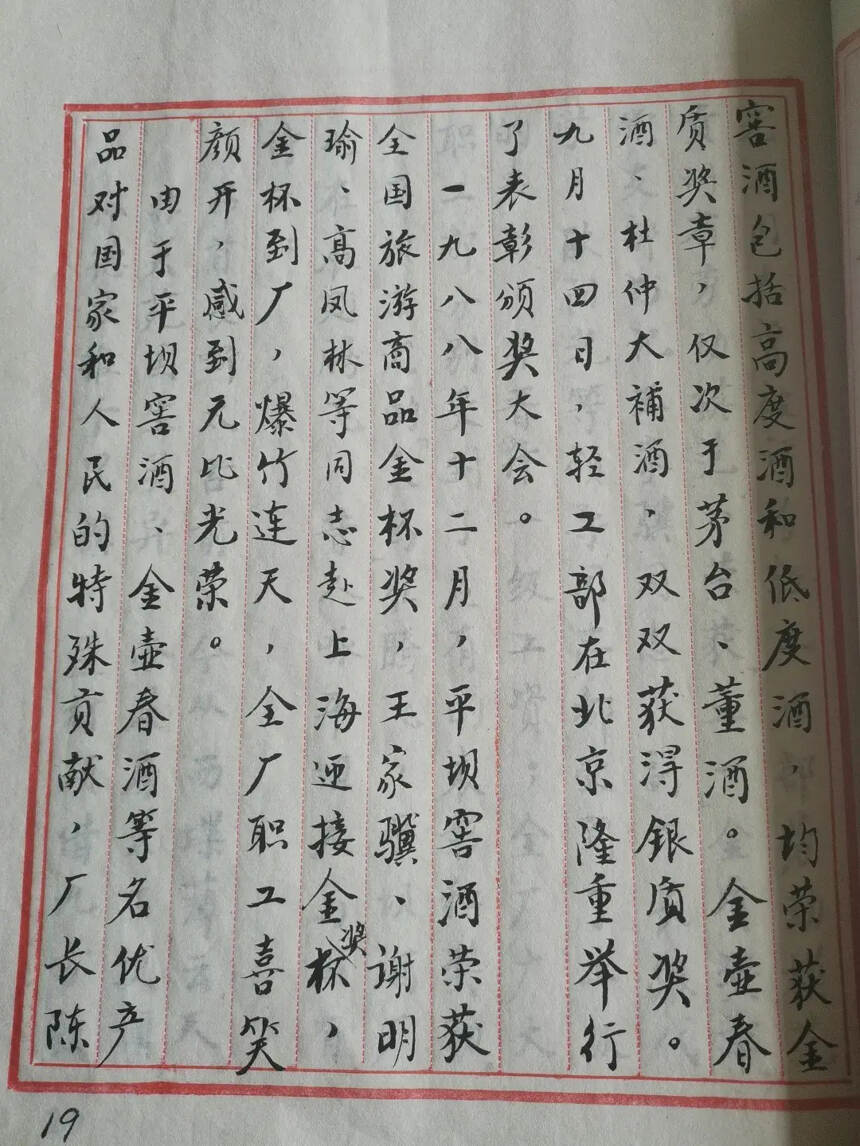 窖酒包括高度酒和低度酒，均荣获金
质奖章，仅次于茅台、董酒。金壶春
酒、杜仲大补酒，双双获得银质奖。
九月十四日，轻工部在北京隆重举行
了表彰颁奖大会。
一九八八年十二月，平坝窖酒荣获
全国旅游商品金杯奖，王家骥、谢明
瑜、高凤林等同志赴上海迎接金杯奖，
金杯到厂，爆竹连天，全厂职工喜笑
颜开，感到无比光荣。
由于平坝窖酒、金壶春酒等名优产
品对国家和人民的特殊贡献，厂长陈
19